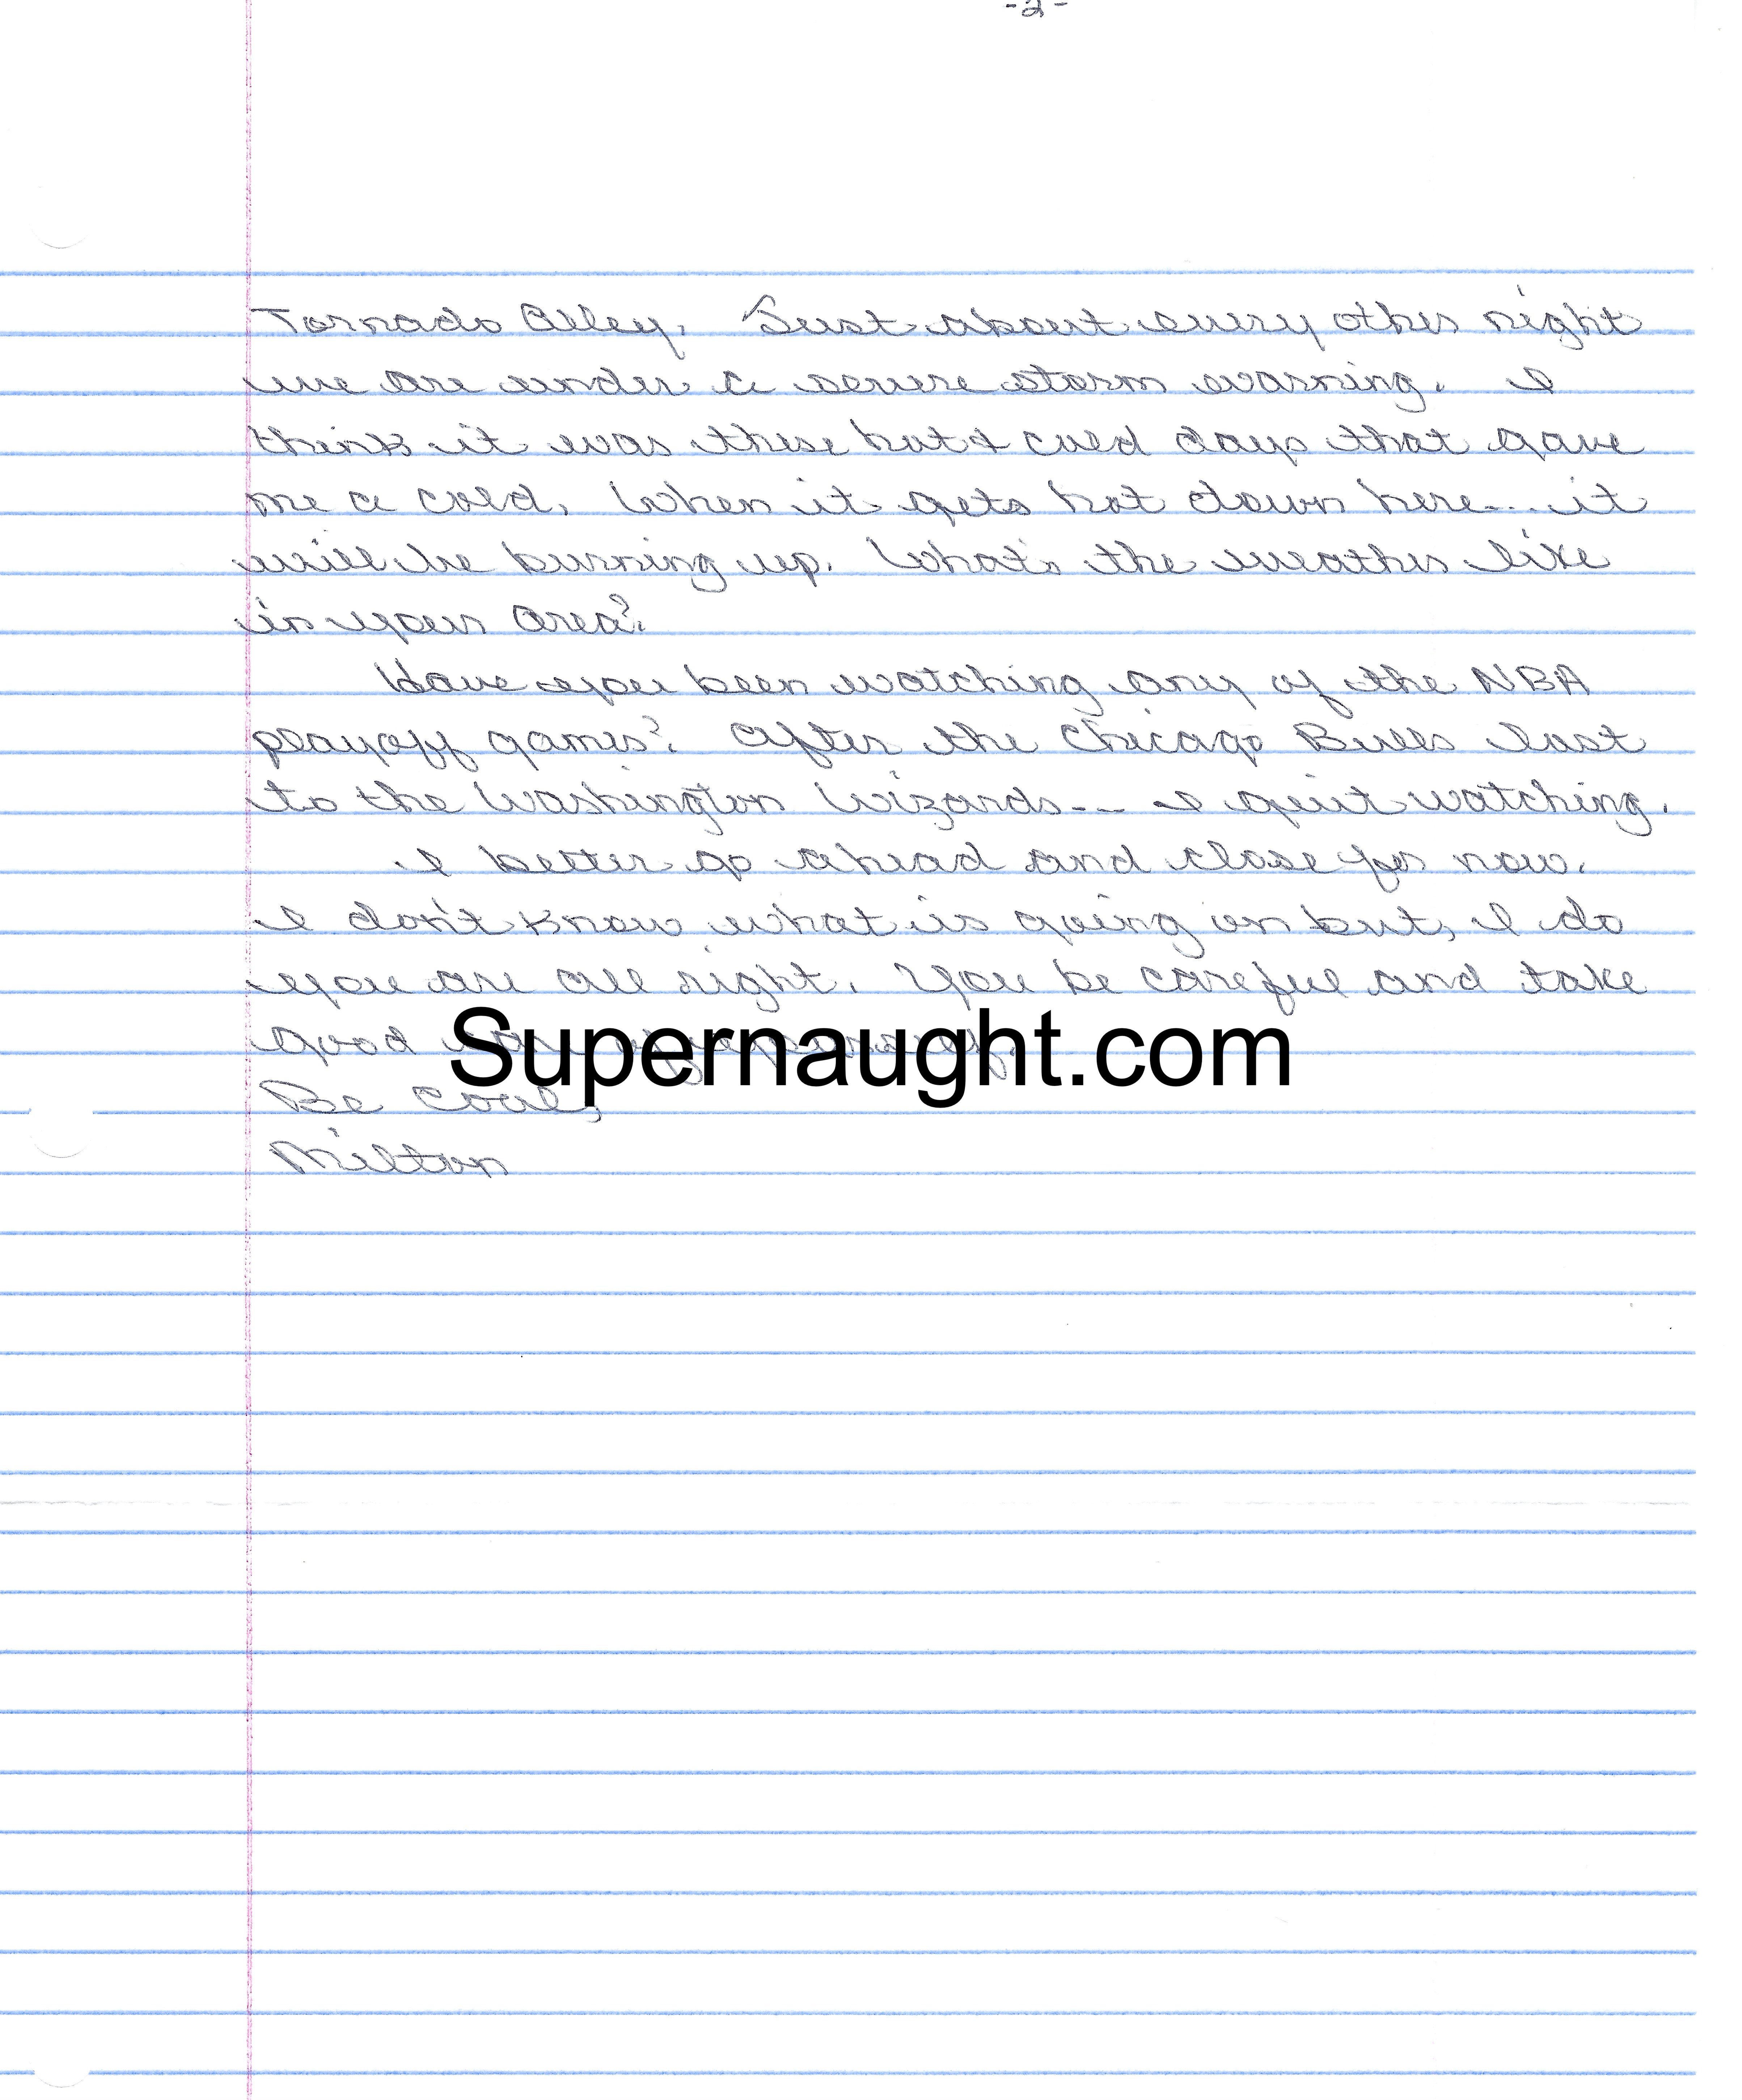 -2-
Tornado Alley. Just about every other night
we are under a severe storm warning. I
think it was these hot & cold days that gave
me a cold. When it gets hot down here... it
will be burning up. What's the weather like
in your area?
Have you been watching any of the NBA
playoff games? After the Chicago Bulls lost
to the Washington Wizards--- I quit watching.
I better go ahead and close for now.
I don't know what is going on but, I do
you are all right. You be careful and take
good
Supernaught.com
Be Cool,
Milton